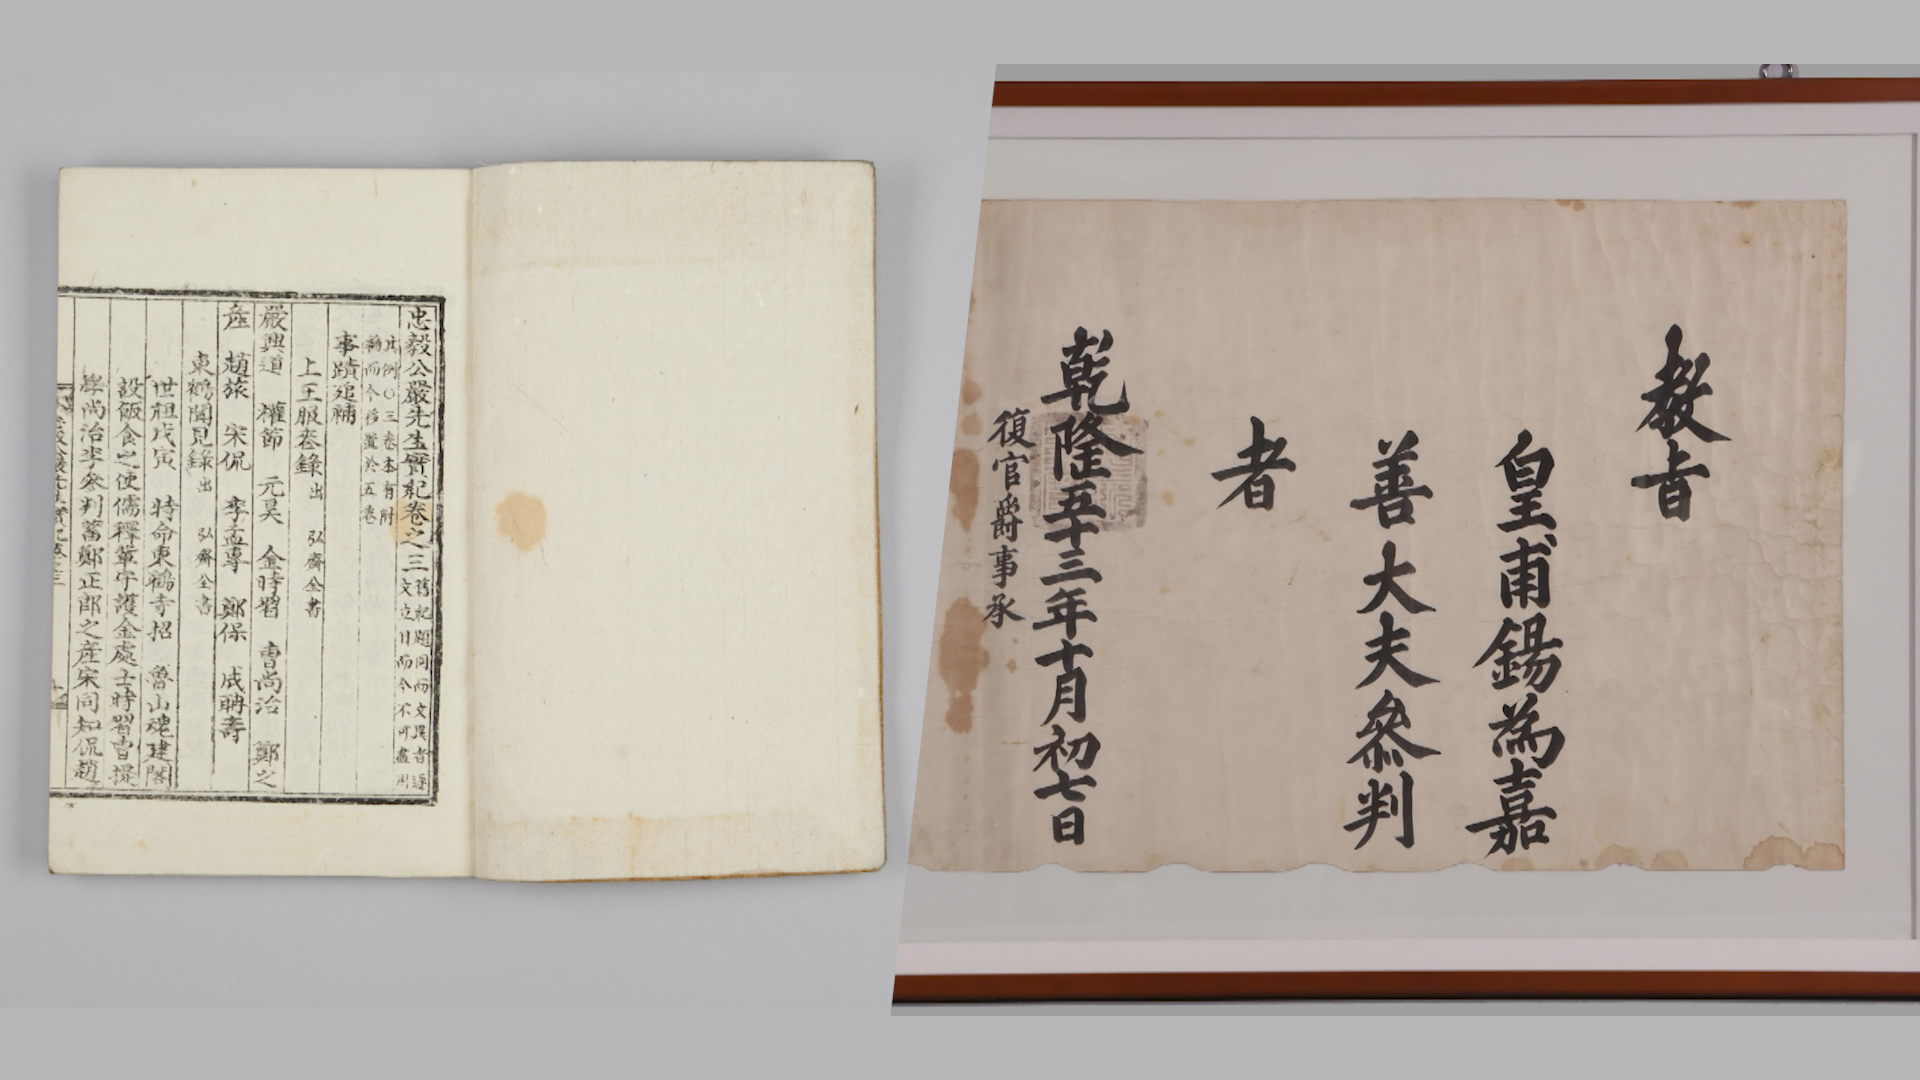 忠毅公嚴先生實紀卷之三舊紀題同而文異者逐
文立目而今不可盡附
此例○三卷本有附
錄而今移置於五卷
事蹟追補
上王服喪錄出 弘齋全書
嚴興道 權節 元昊 金時習 曺尚治 鄭之
産 趙旅 宋侃 李孟專 鄭保 成聃壽
東鶴聞見錄出 弘齋全書
世祖戊寅 特命東鶴寺招 魯山魂建閣
設飯食之使儒釋輩守護金處士時習曺提
學尚治李參判蓄鄭正郎之産宋同知侃趙
教旨
皇甫錫爲嘉
善大夫參判
者
乾隆五十三年十月初七日
復官爵事承